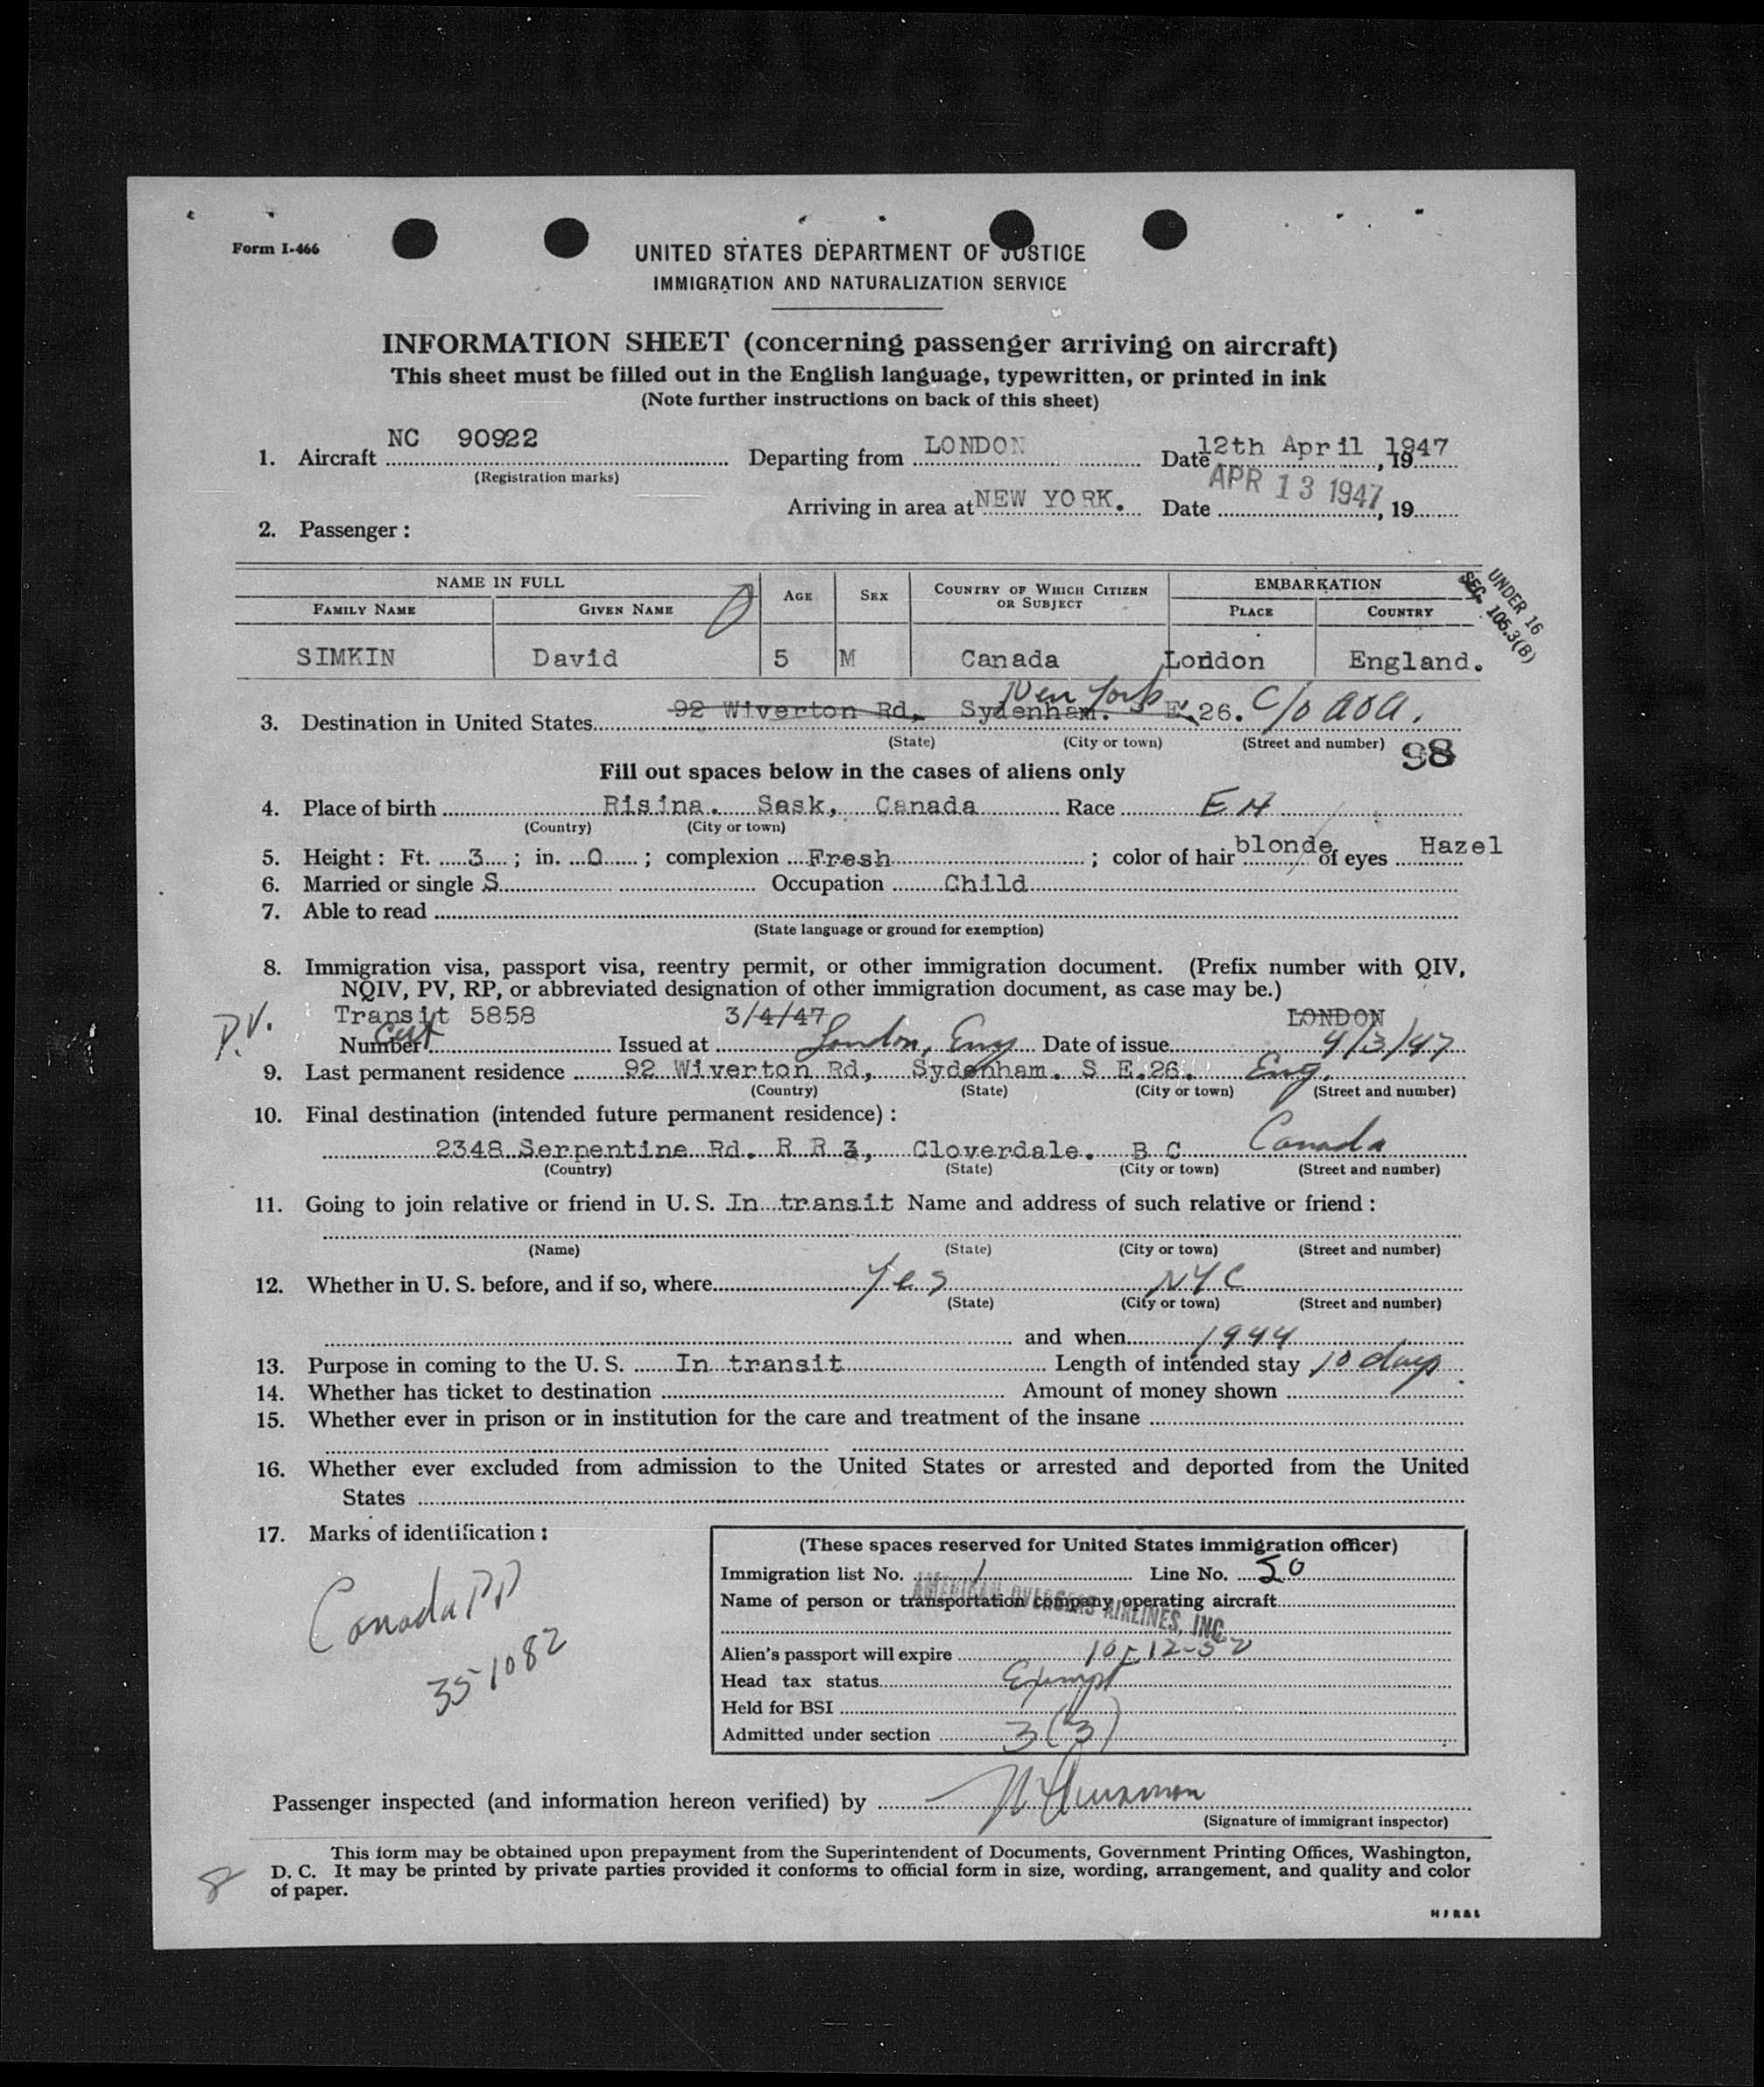 Form I-466
UNITED STATES DEPARTMENT OF JUSTICE
IMMIGRATION AND NATURALIZATION SERVICE
INFORMATION SHEET (concerning passenger arriving on aircraft)
This sheet must be filled out in the English language, typewritten, or printed in ink
(Note further instructions on back of this sheet)
1. Aircraft NC 90922 Departing from LONDON Date 12th April 1947, 19
(Registration marks)
Arriving in area at NEW YORK. Date APR 13 1947, 19
2. Passenger:
NAME IN FULL AGE SEX COUNTRY OF WHICH CITIZEN OR SUBJECT EMBARKATION
FAMILY NAME GIVEN NAME PLACE COUNTRY
UNDER 16
SEC. 105.3(B)
SIMKIN David 5 M Canada London England.
New York
3. Destination in United States 92 Wiverton Rd, Sydenham. S E.26. C/o AOA.
(State) (City or town) (Street and number) 98
Fill out spaces below in the cases of aliens only
4. Place of birth Risina. Sask, Canada Race EN
(Country) (City or town)
5. Height: Ft. 3; in. 0; complexion Fresh; color of hair blonde of eyes Hazel
6. Married or single S Occupation Child
7. Able to read
(State language or ground for exemption)
8. Immigration visa, passport visa, reentry permit, or other immigration document. (Prefix number with QIV,
NQIV, PV, RP, or abbreviated designation of other immigration document, as case may be.)
P.V. Transit 5858 3/4/47 LONDON
Number Cert Issued at London, Eng Date of issue 4/3/47
9. Last permanent residence 92 Wiverton Rd, Sydenham. S E.26. Eng.
(Country) (State) (City or town) (Street and number)
10. Final destination (intended future permanent residence):
2348 Serpentine Rd. R R 3, Cloverdale. B C Canada
(Country) (State) (City or town) (Street and number)
11. Going to join relative or friend in U. S. In transit Name and address of such relative or friend:
(Name) (State) (City or town) (Street and number)
12. Whether in U. S. before, and if so, where Yes NYC
(State) (City or town) (Street and number)
and when 1944
13. Purpose in coming to the U. S. In transit Length of intended stay 10 days
14. Whether has ticket to destination Amount of money shown
15. Whether ever in prison or in institution for the care and treatment of the insane
16. Whether ever excluded from admission to the United States or arrested and deported from the United
States
17. Marks of identification:
Canada PP
351082
(These spaces reserved for United States immigration officer)
Immigration list No. 1 Line No. 50
Name of person or transportation company operating aircraft
AMERICAN OVERSEAS AIRLINES, INC.
Alien's passport will expire 10-12-52
Head tax status Exempt
Held for BSI
Admitted under section 3(3)
Passenger inspected (and information hereon verified) by
(Signature of immigrant inspector)
This form may be obtained upon prepayment from the Superintendent of Documents, Government Printing Offices, Washington,
D. C. It may be printed by private parties provided it conforms to official form in size, wording, arrangement, and quality and color
of paper.
8